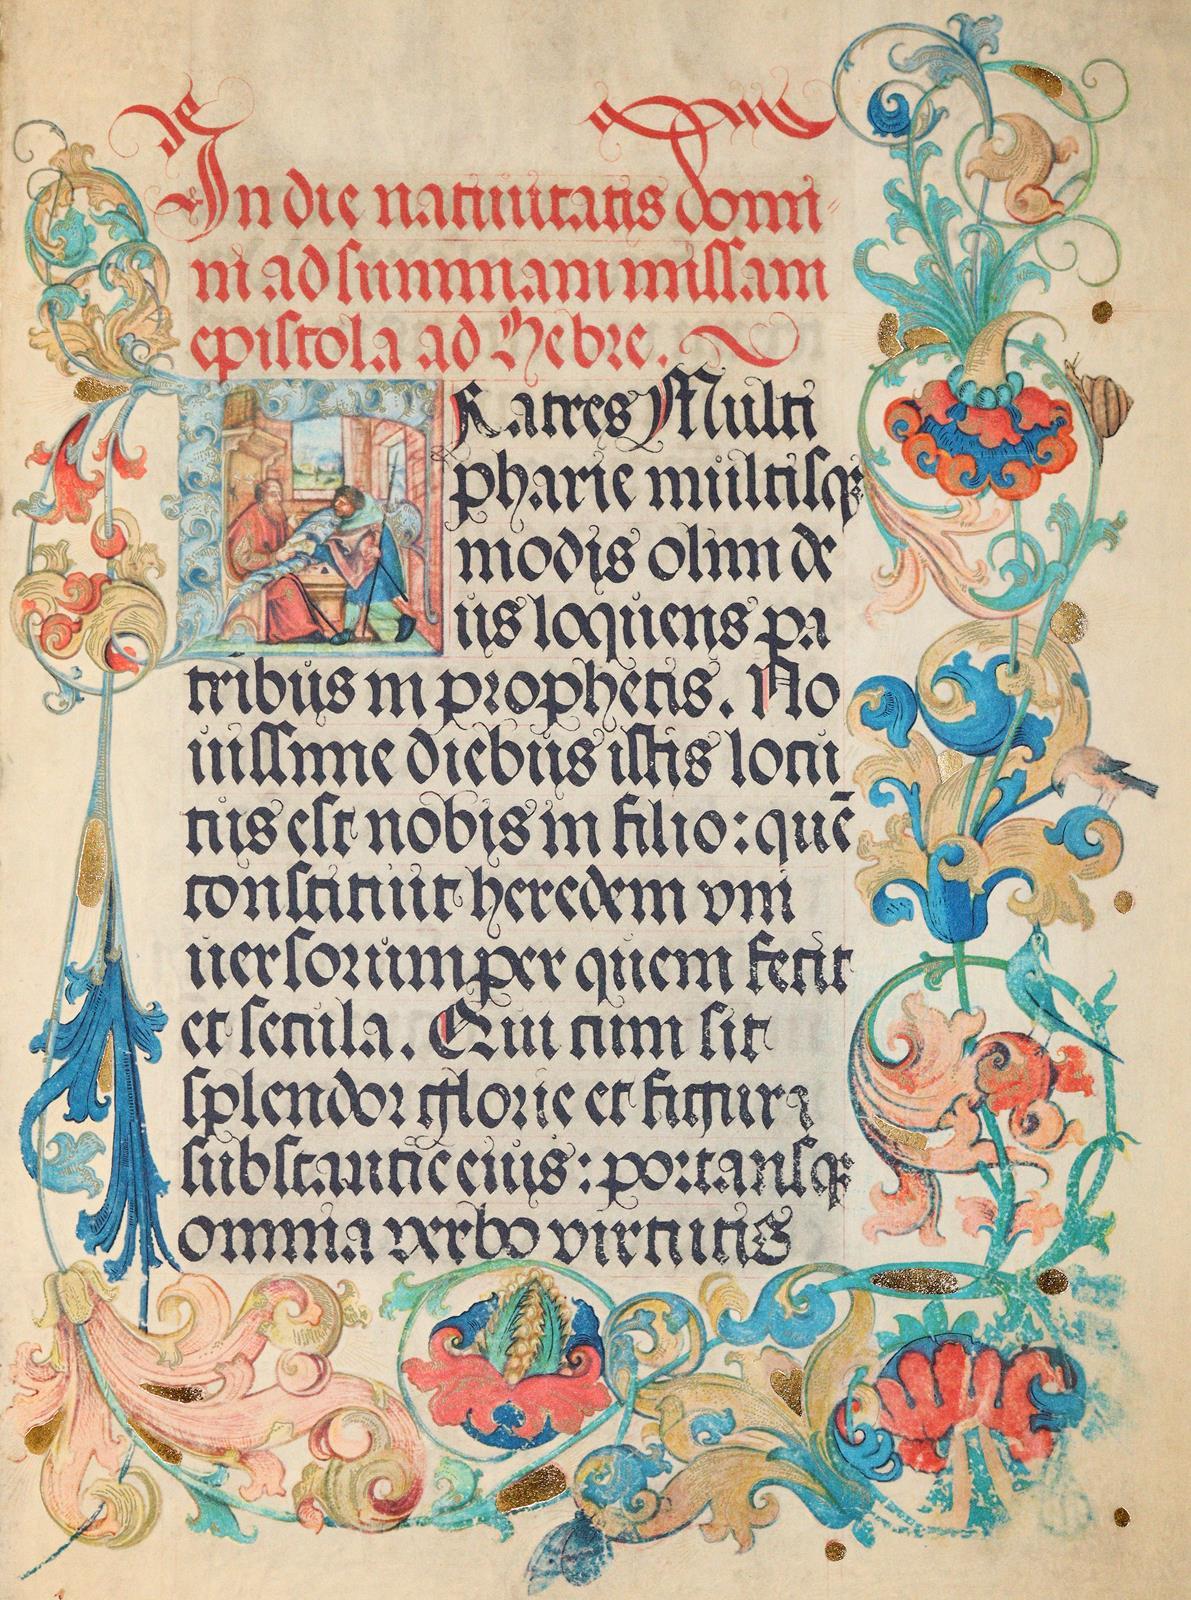 In die natiuitatis domi
ni ad summam missam
epistola ad Hebre.
Fratres Multi
pharie multisq₃
modis olim de
us loquens pa
tribus in prophetis. No
uissime diebus istis locu
tus est nobis in filio: quē
constituit heredem vni
uersorum per quem fecit
et secula. Qui cum sit
splendor glorie et figura
substantie eius: portansq₃
omnia verbo virtutis